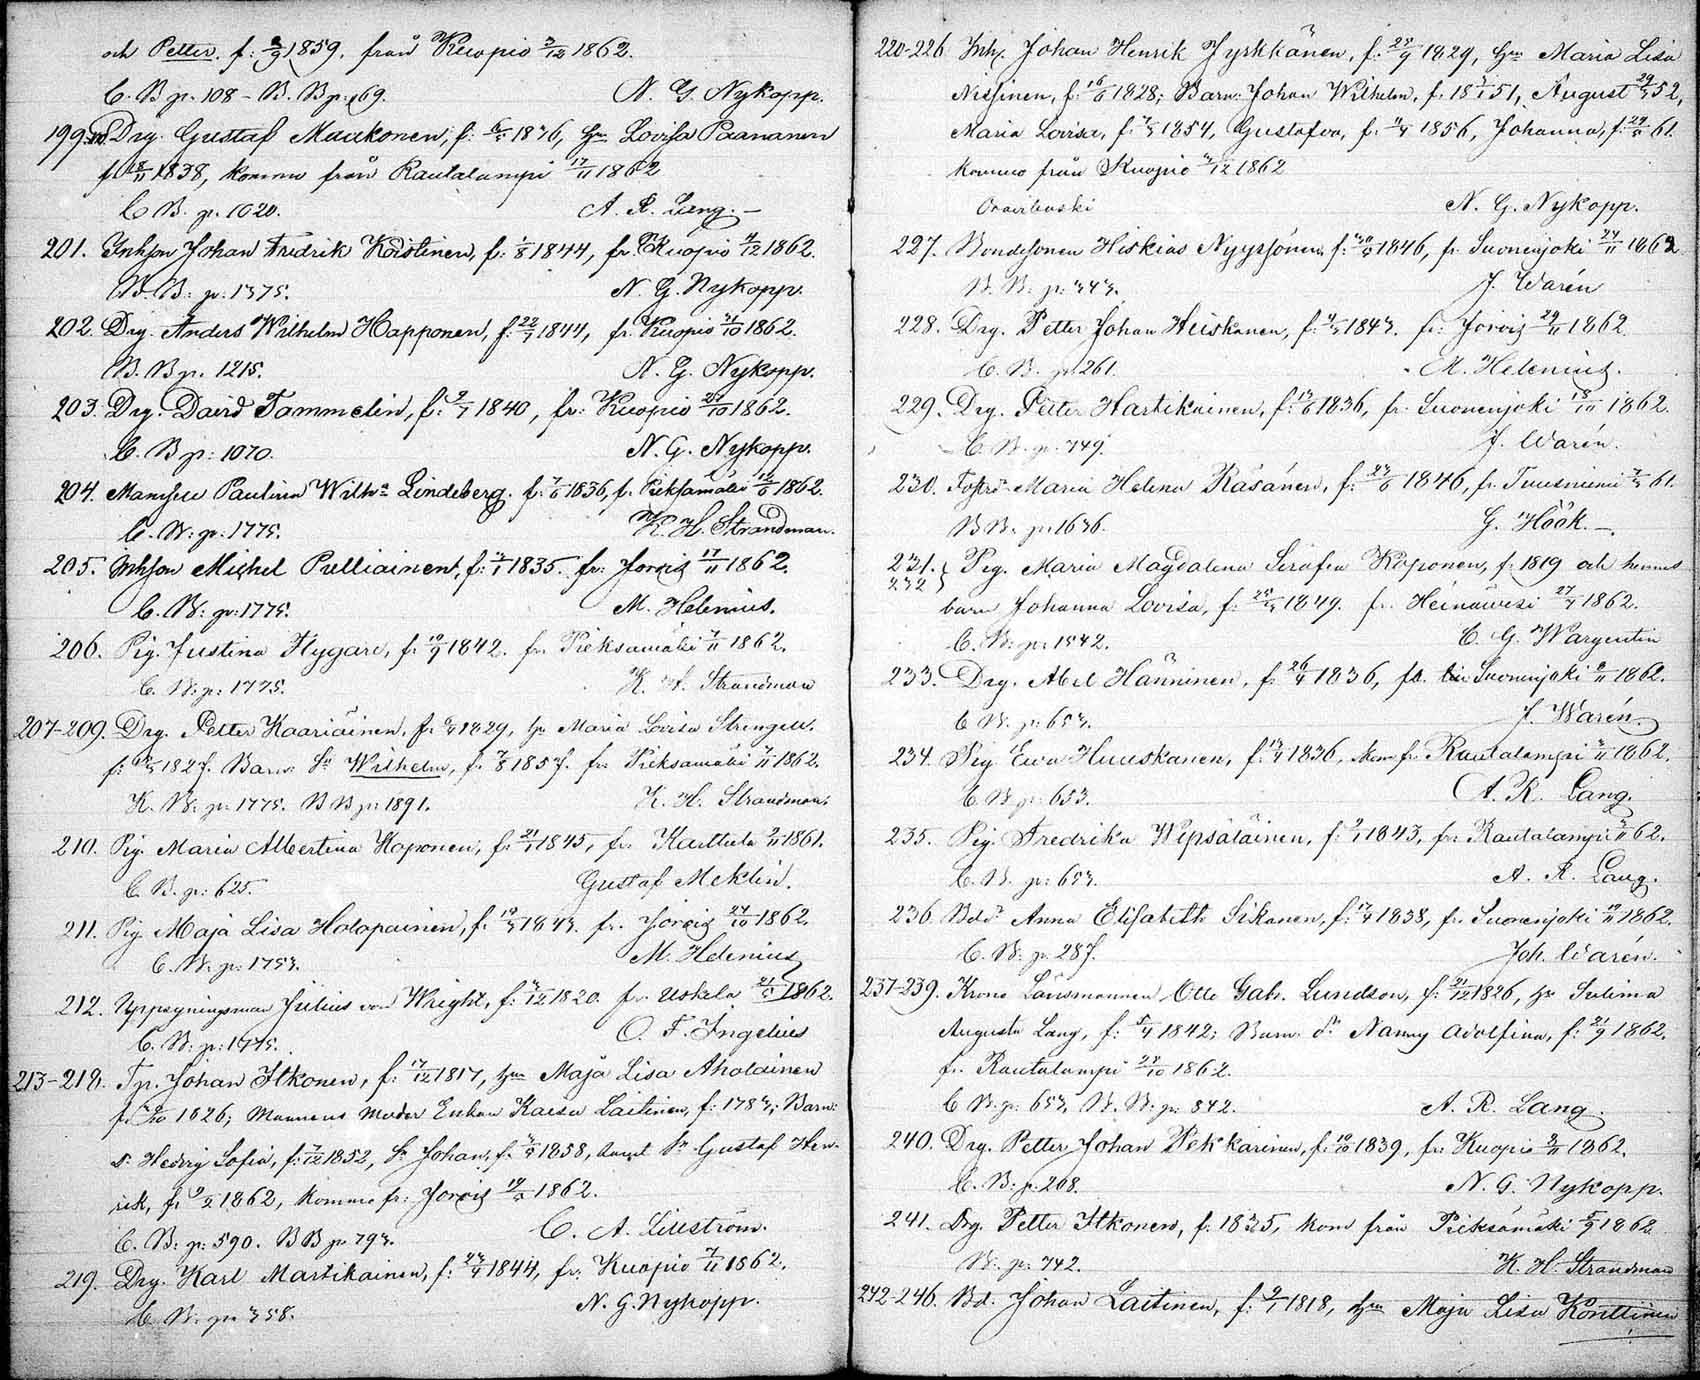 och Petter. f: 3/9 1859. från Kuopio 3/12 1862.
C. B p. 108 - B. B p: 69. N. G. Nykopp.
Drg. Gustaf Maukonen, f: 1836, hu Lovisa Paananen
f. 18/11 1838, komma från Rautalampi 17/11 1862
C B. p. 1020. A. R. Lang. -
201. Inhson Johan Fredrik Koistinen, f: 1/8 1844, fr. Kuopio 4/12 1862.
B. B: p: 1375. N. G. Nykopp.
202. Drg. Anders Wilhelm Happonen, f: 22/7 1844, fr. Kuopio 31/10 1862.
B. B p. 1215. N. G. Nykopp.
203. Drg. David Tammelin, f: 9/7 1840, fr: Kuopio 1862.
C. B p: 1070. N. G. Nykopp.
204. Mamsell Paulina Wilha Lindeberg. f: 7/6 1836, f. Pieksämäki 1862.
C. B: p: 1775. K. H. Strandman.
205. Inhson Michel Pulliainen, f: 1835. fr: Jorois 17/11 1862.
C. B: p: 1775. M. Helenius.
206. Pig. Justina Flygare, f: 19/9 1842. fr. Pieksämäki 7/11 1862.
C. B: p: 1775. K. H. Strandman
207-209. Drg. Petter Kaariäinen, f: 1829, hu Maria Lovisa Strengell.
f: 1827. Barn: Sn Wilhelm, f: 7/8 1857. fr. Pieksämäki 7/11 1862.
K. B: p: 1775. B B p: 1891. K. H. Strandman.
210. Pig. Maria Albertina Koponen, f: 21/1 1845, fr. Karttula 2/11 1861.
C. B. p: 625. Gustaf Meklin.
211. Pig. Maja Lisa Holopainen, f: 19/3 1843. fr. Jorois 24/10 1862.
C. B: p: 1753. M. Helenius
212. Uppsyningsman Julius von Wright, f: 1820. fr. Uskela 21/5 1862.
C. B: p: 1775. O. F. Ingelius
213-218. Tp. Johan Itkonen, f: 17/12 1817, hun Maja Lisa Aholainen
1826; Mannens moder Enkan Kaisa Laitinen, f: 1783; Barn:
dr Hedvig Sofia, f: 7/12 1852, Sn Johan, f: 1858, samt Sn Gustaf Hen-
rik, f: 9/2 1862, komma fr: Jorois 1862.
C. B: p: 590. B B p. 793. C. A. Lilliström.
219. Drg. Karl Martikainen, f: 23/4 1844, fr. Kuopio 7/11 1862.
C B: p: 358. N. G. Nykopp.
220-226. Inh. Johan Henrik Jyrkkänen, f: 1829, hun Maria Lisa
Nissinen, f: 16/6 1828; Barn: Johan Wilhelm, f. 18 51, August 52,
Maria Lovisa, f: 1854, Gustafva, f: 1856, Johanna, f: 61.
komma från Kuopio 1862
Oravikoski N. G. Nykopp.
227. Bondesonen Hiskias Nyyssönen, f: 1846, fr. Suonenjoki 24/11 1862
B. B: p: 343. J. Warén
228. Drg. Petter Johan Huiskanen, f: 1843. fr: Jorois 29/11 1862
C. B. p. 261. M. Helenius.
229. Drg. Petter Hartikainen, f: 1836, fr. Suonenjoki 1862.
C. B. p: 749. J. Warén.
230. Maria Helena Räsänen, f: 23/6 1846, fr. Tuusniemi 61.
B B. p: 1636. G. Höök. -
231. 232 } Pig. Maria Magdalena Serafia Koponen, f: 1819 och hennes
barn Johanna Lovisa, f: 1849. fr. Heinävesi 1862.
C. B: p: 1542. C. G. Wargentin
233. Drg. Abel Hänninen, f: 26/4 1836, fr. Suonenjoki 1862.
C B. p: 653. J. Warén.
234. Pig Ewa Huuskanen, f: 1836, kom fr. Rautalampi 1862.
C. B p: 653. A. R. Lang.
235. Pig. Fredrika Wepsäläinen, f: 1843, fr. Rautalampi 62.
C. B. p: 653. A. R. Lang.
236. Anna Elisabeth Sikanen, f: 1838, fr. Suonenjoki 1862.
C. B. p: 287. Joh. Warén.
237-239. Krono Länsmannen Otto Gabr. Lundson, f: 21/12 1826, hu Sulima
Augusta Lang, f: 1842; Barn: dr Nanny Adolfina, f: 21/9 1862.
fr. Rautalampi 1862.
C B. p: 653. B. B: p: 842. A. R. Lang.
240. Drg. Petter Johan Pekkarinen, f: 19/10 1839, fr: Kuopio 1862.
C. B: p. 208. N. G. Nykopp.
241. Drg. Petter Itkonen, f. 1835, kom från Pieksämäki 5/9 1862.
B: p: 742. K. H. Strandman
242-246. Bd. Johan Laitinen, f: 9/1 1818, hun Maja Lisa Konttinen